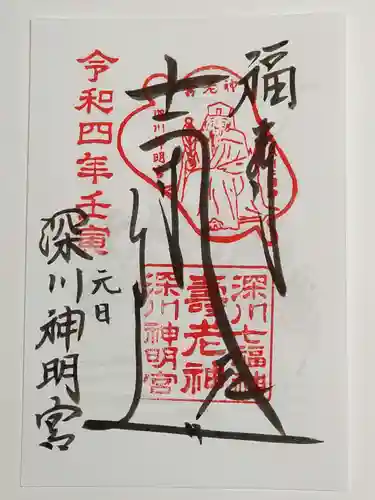 福寿
寿老神
深川神明宮
深川七福神
寿老神
深川神明宮
令和四年壬寅
元日
深川神明宮